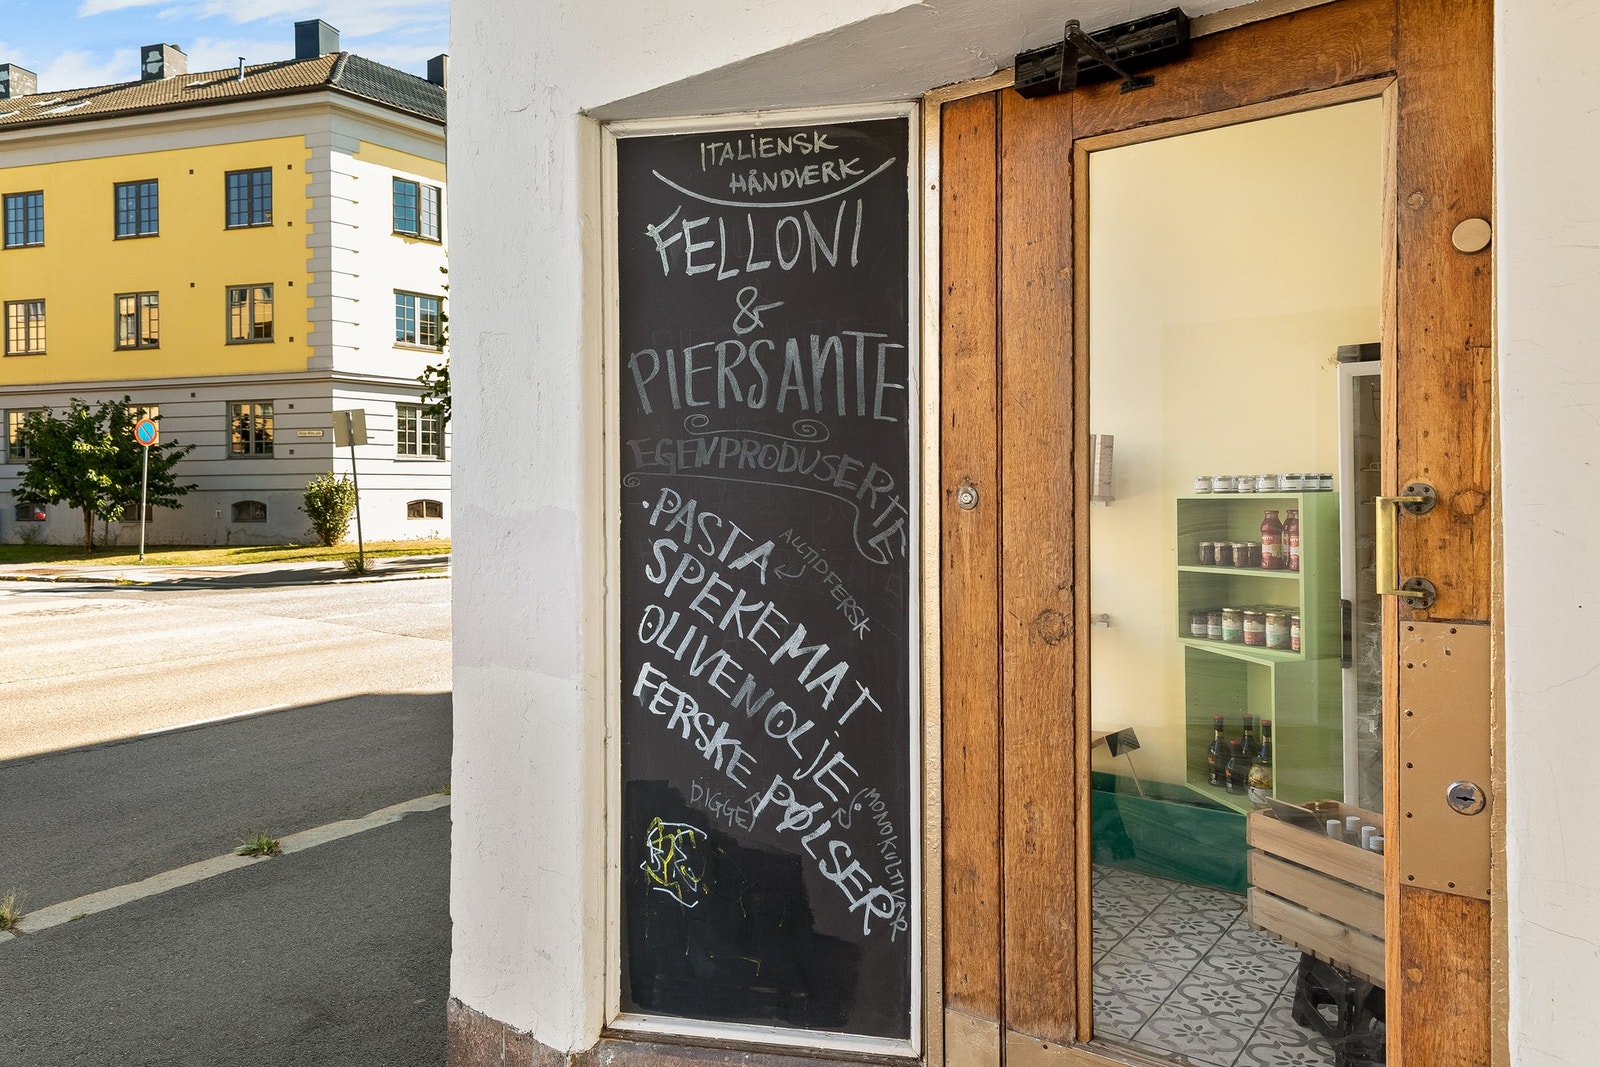 ITALIENSK
HÅNDVERK
FELLONI
&
PIERSANTE
EGENPRODUSERTE
· PASTA
ALLTID FERSK
SPEKEMAT
OLIVENOLJE
MONOKULTIVAR
FERSKE PØLSER
DIGGE